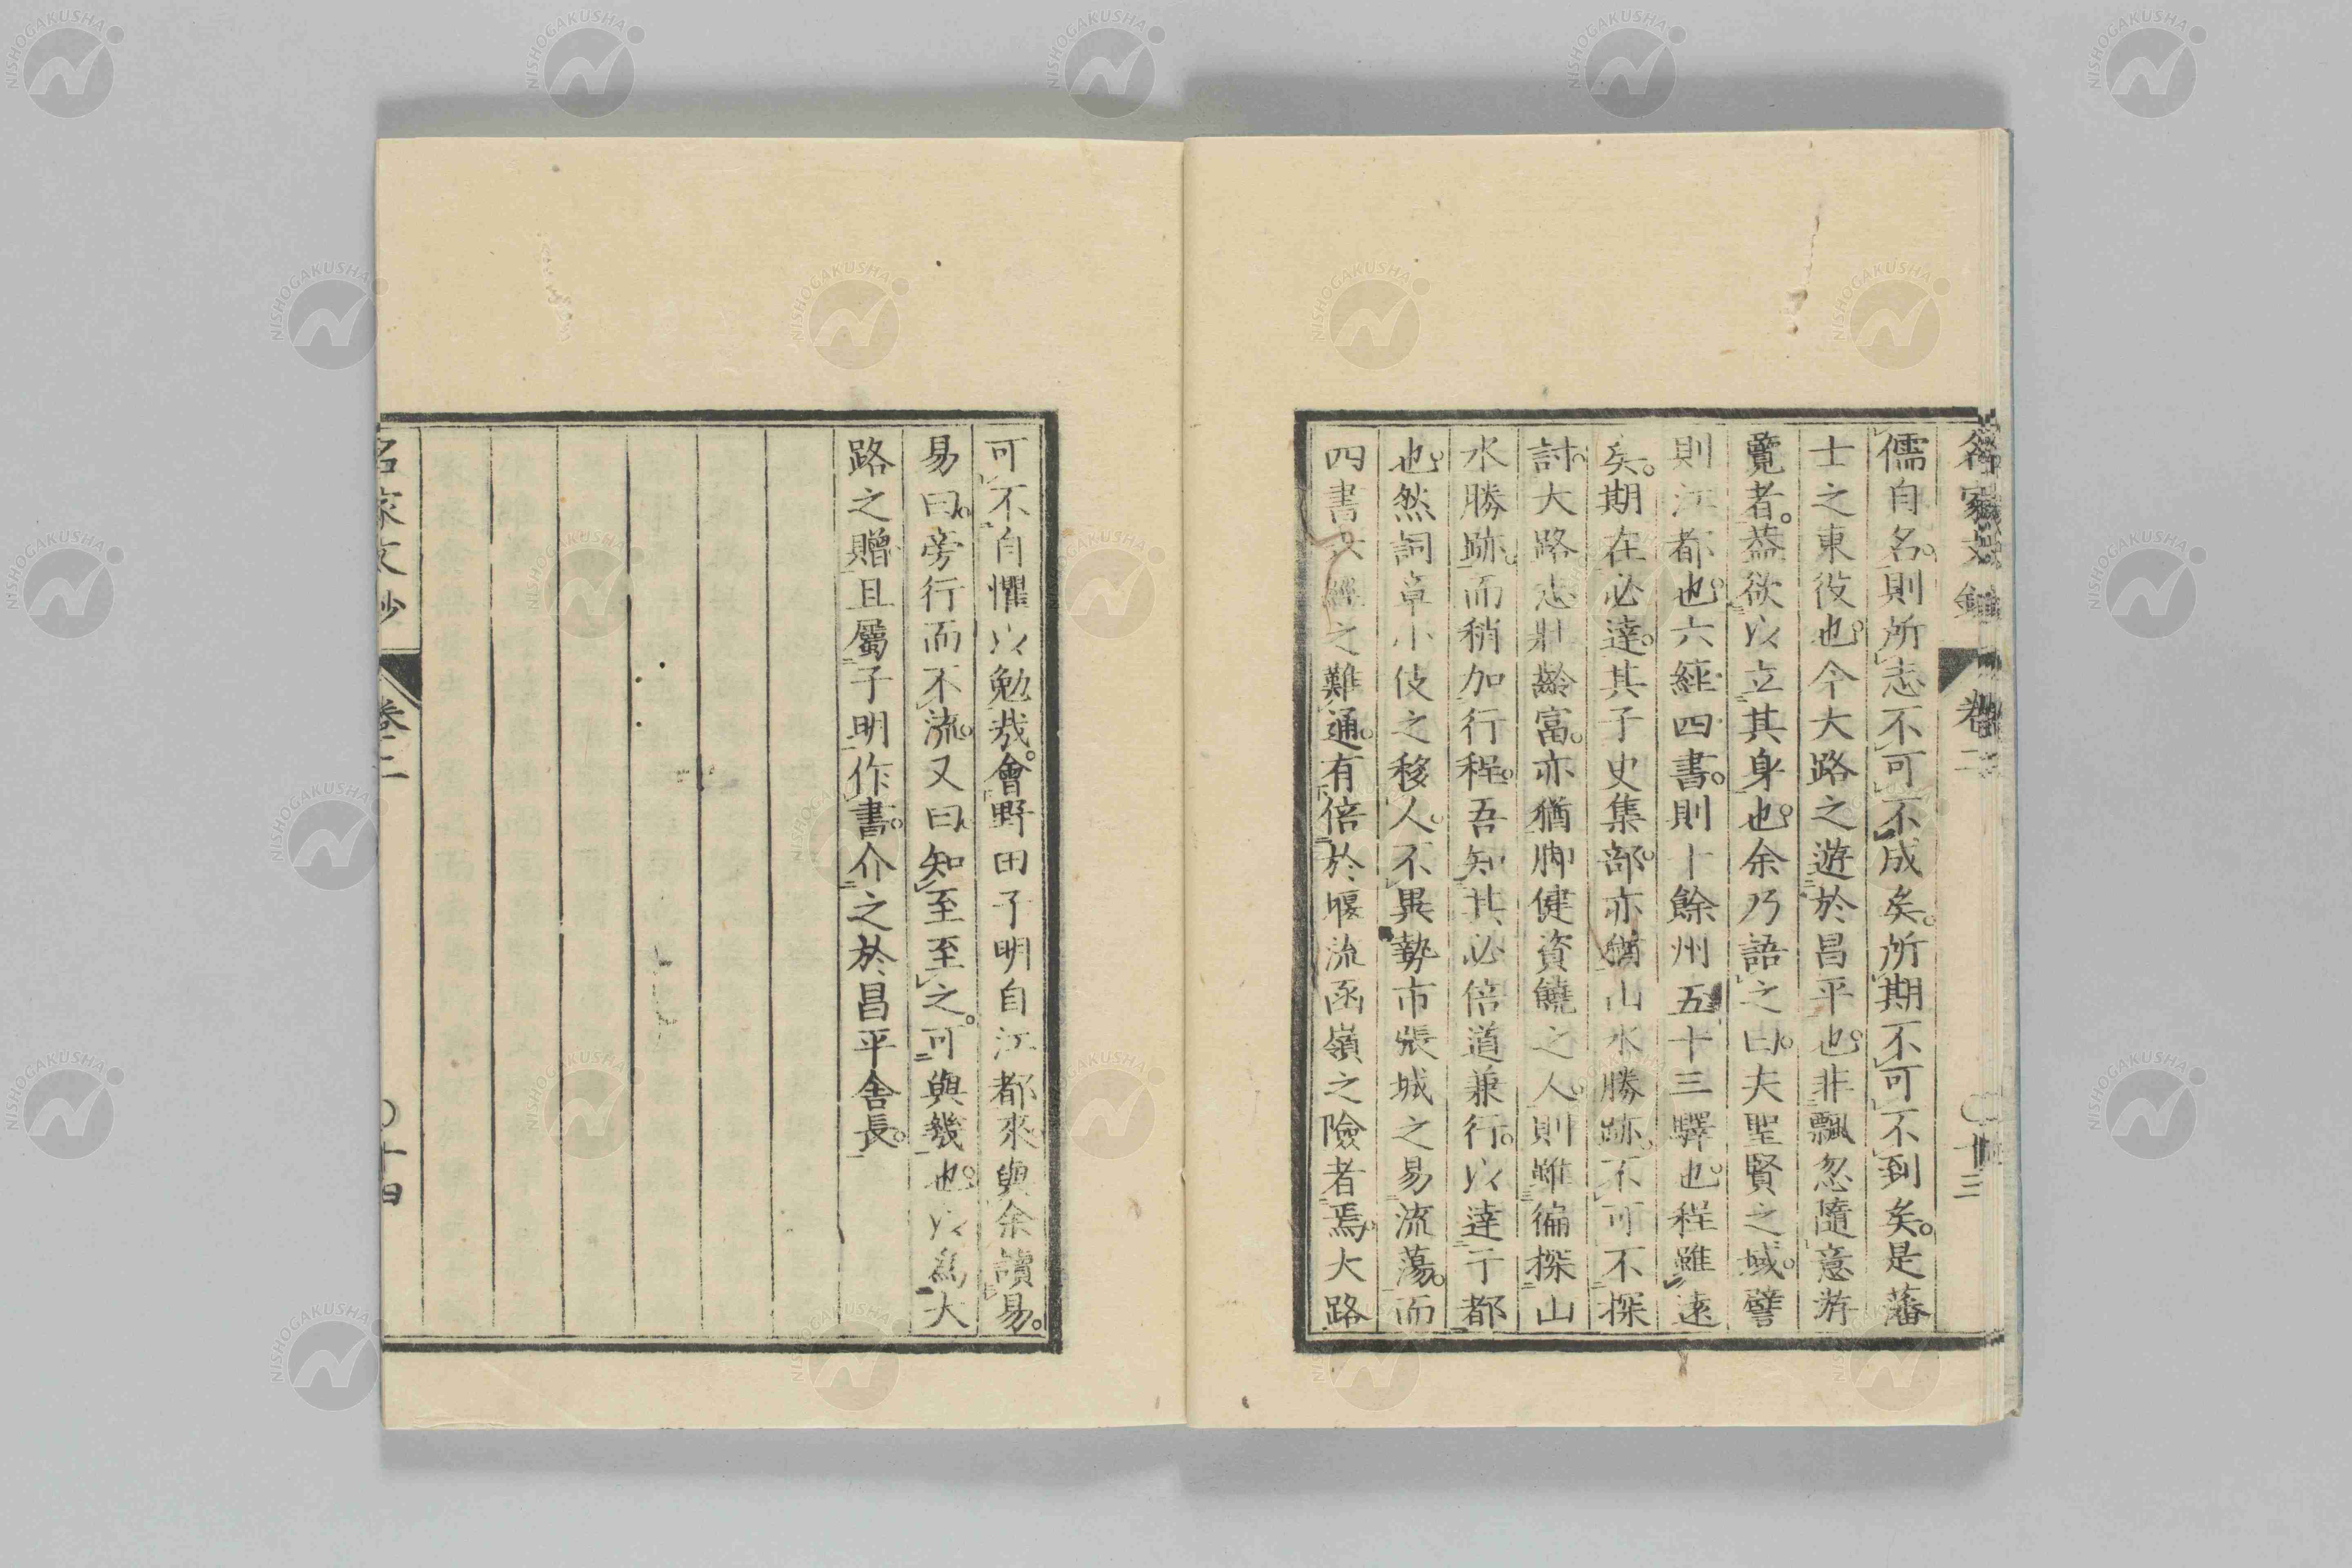 名家文鈔 卷二 〇十三
儒自名。則所志不可不成矣。所期不可不到矣。是藩
士之東役也。今大路之遊於昌平也。非飄忽隨意游
覽者。蓋欲以立其身也。余乃語之曰。夫聖賢之域。譬
則江都也。六經四書。則十餘州五十三驛也。程雖遠
矣。期在必達。其子史集部。亦猶山水勝跡。不可不探
討。大路志壯齡富。亦猶脚健資饒之人。則雖徧探山
水勝跡。而稍加行程。吾知其必倍道兼行。以達于都
也。然詞章小伎之移人。不異勢市張城之易流蕩。而
四書六經之難通。有倍於堰流函嶺之險者焉。大路
可不自懼以勉哉。會野田子明自江都來。與余讀易。
易曰。旁行而不流。又曰。知至至之。可與幾也。以爲大
路之贈。且屬子明作書。介之於昌平舍長。
名家文鈔 卷二 〇十四
NISHOGAKUSHA